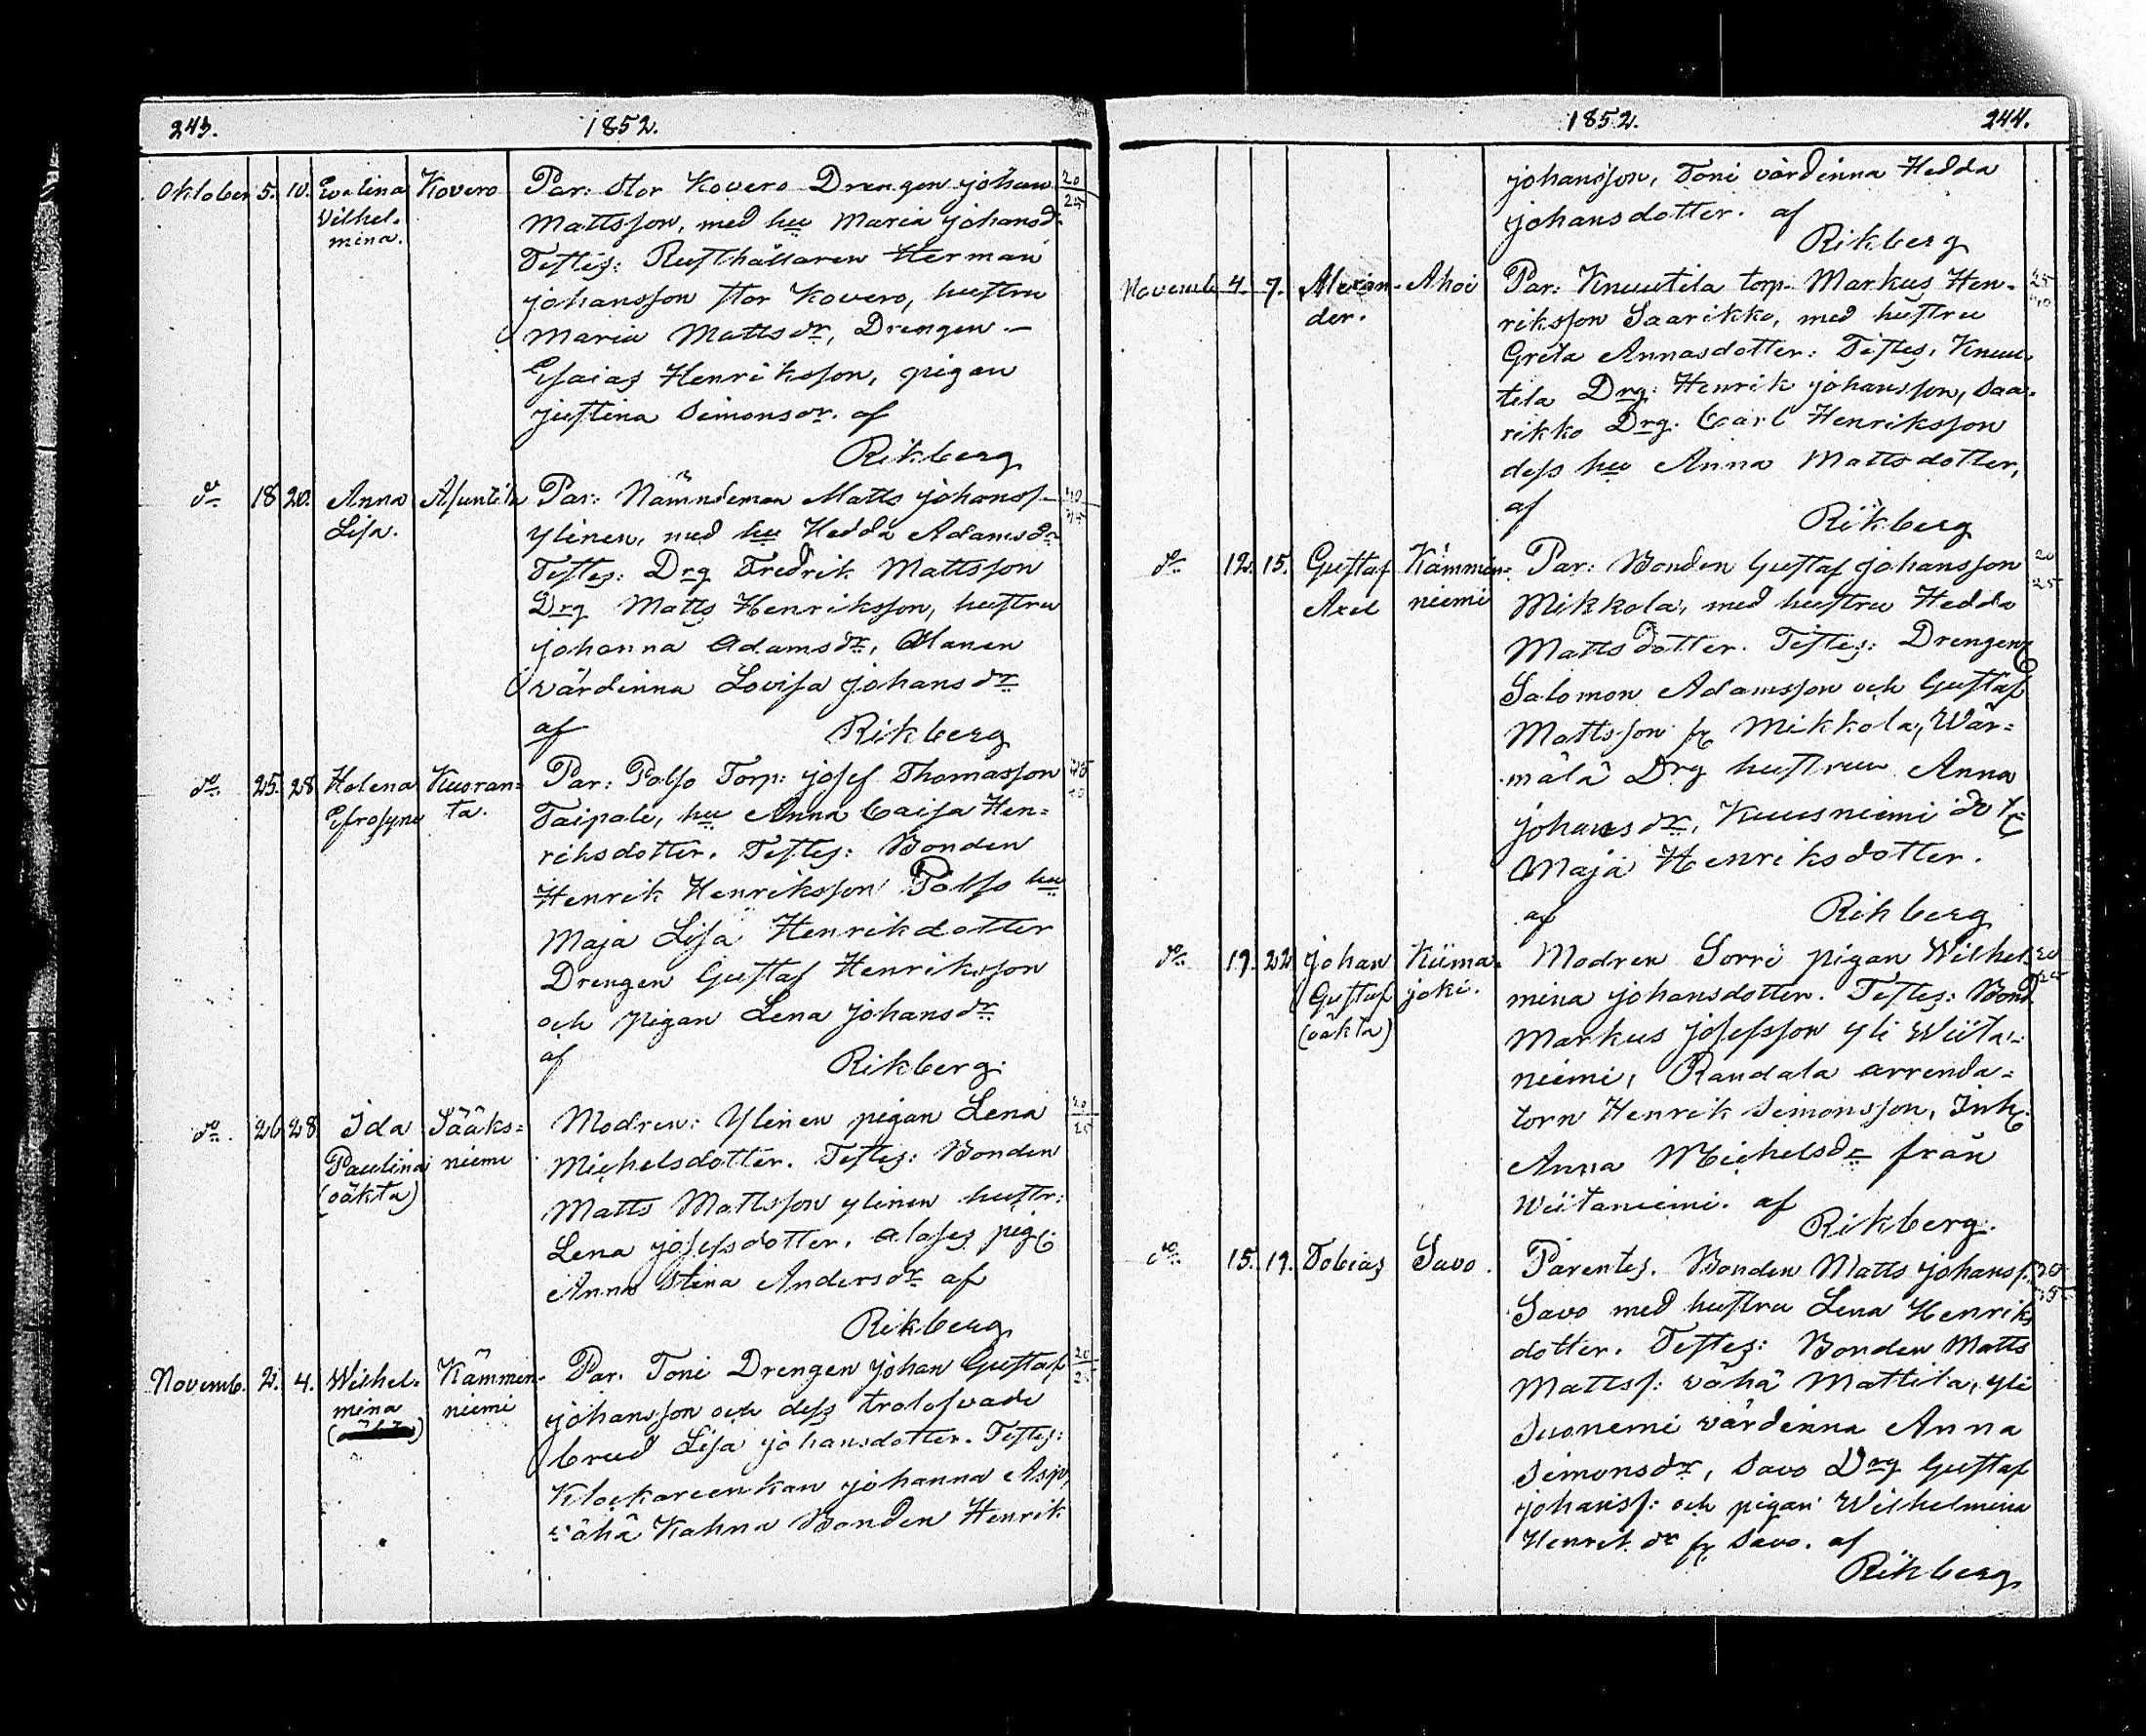 243. 1852.
Oktober 5. 10. Evelina Kovero Par: Stor Kovero Drengen Johan 20/25
Vilhel- Mattsson, med hu Maria Johansdr
mina. Testes: Rusthållaren Herman
Johansson Stor Kovero, hustru
Maria Mattsdr, Drengen
Esaias Henriksson, pigan
Justina Simonsdr. af
Rikberg
do 18 20. Anna Asuntila Par: Nämndeman Matts Johanss
Lisa. Ylinen, med hu Hedda Adamsdr
Testes: Drg Fredrik Mattsson
Drg Matts Henriksson, hustru
Johanna Adamsdr, Alanen
värdinna Lovisa Johansdr
af Rikberg
do 25. 28 Helena Kuoran= Par: Polso Torp: Josef Thomasson
Efrosyne ta. Taipale, hu Anna Caisa Hen=
riksdotter. Testes: Bonden
Henrik Henriksson Polso hu
Maja Lisa Henrikdotter
Drengen Gustaf Henriksson
och pigan Lena Johansdr
af Rikberg:
do 26 28 Ida Sääks= Modren: Ylinen pigan Lena 20/25
Paulina niemi Michelsdotter. Testes: Bonden
(oäkta) Matts Mattsson Ylinen hustr:
Lena Josefsdotter. Alases pig:
Anna Stina Andersdr af
Rikberg
Novemb. 2. 4. Wilhel= Kämmen- Par. Toni Drengen Johan Gustaf 20/25
mina niemi Johansson och dess trolofvade
brud Lisa Johansdotter. Testes:
Klockareenkan Johanna Asp,
vähä Kahna Bonden Henrik
1852. 244.
Johansson, Toni värdinna Hedda
Johansdotter. af
Rikberg
Novemb 4. 7. Alexan- Ahoi Par: Knuutila torp. Markus Hen-
der. riksson Saarikko, med hustru
Greta Annasdotter: Testes. Knuu-
tila Drg: Henrik Johansson, Saa-
rikko Drg. Carl Henriksson
dess hu Anna Mattsdotter,
af
Rikberg
do 12. 15. Gustaf Kämmen= Par: Bonden Gustaf Johansson 20
Axel niemi Mikkola, med hustru Hedda 25
Mattsdotter. Testes: Drengen
Salomon Adamsson och Gustaf
Mattsson fr Mikkola, Wär=
mälä Drg hustrun Anna
Johansdr, Kuusniemi do
Maja Henriksdotter.
af Rikberg
do 19. 22 Johan Kiima- Modren Sorri pigan Wilhel-
Gustaf joki. mina Johansdotter. Testes: Bond.
(oäkta) Markus Josefsson Yli Wiita-
niemi, Randala arrenda=
torn Henrik Simonsson, Inh:
Anna Michelsdr från
Wiitaniemi. af
Rikberg.
do 15. 19. Tobias Savo. Parentes. Bonden Matts Johanss.
Savo med hustru Lena Henriks
dotter. Testes: Bonden Matts
Mattss: vähä Mattila, Yli
Suonemi värdinna Anna
Simonsdr, Savo Drg Gustaf
Johanss: och pigan Wilhelmina
Henrik dr fr Savo. af
Rikberg